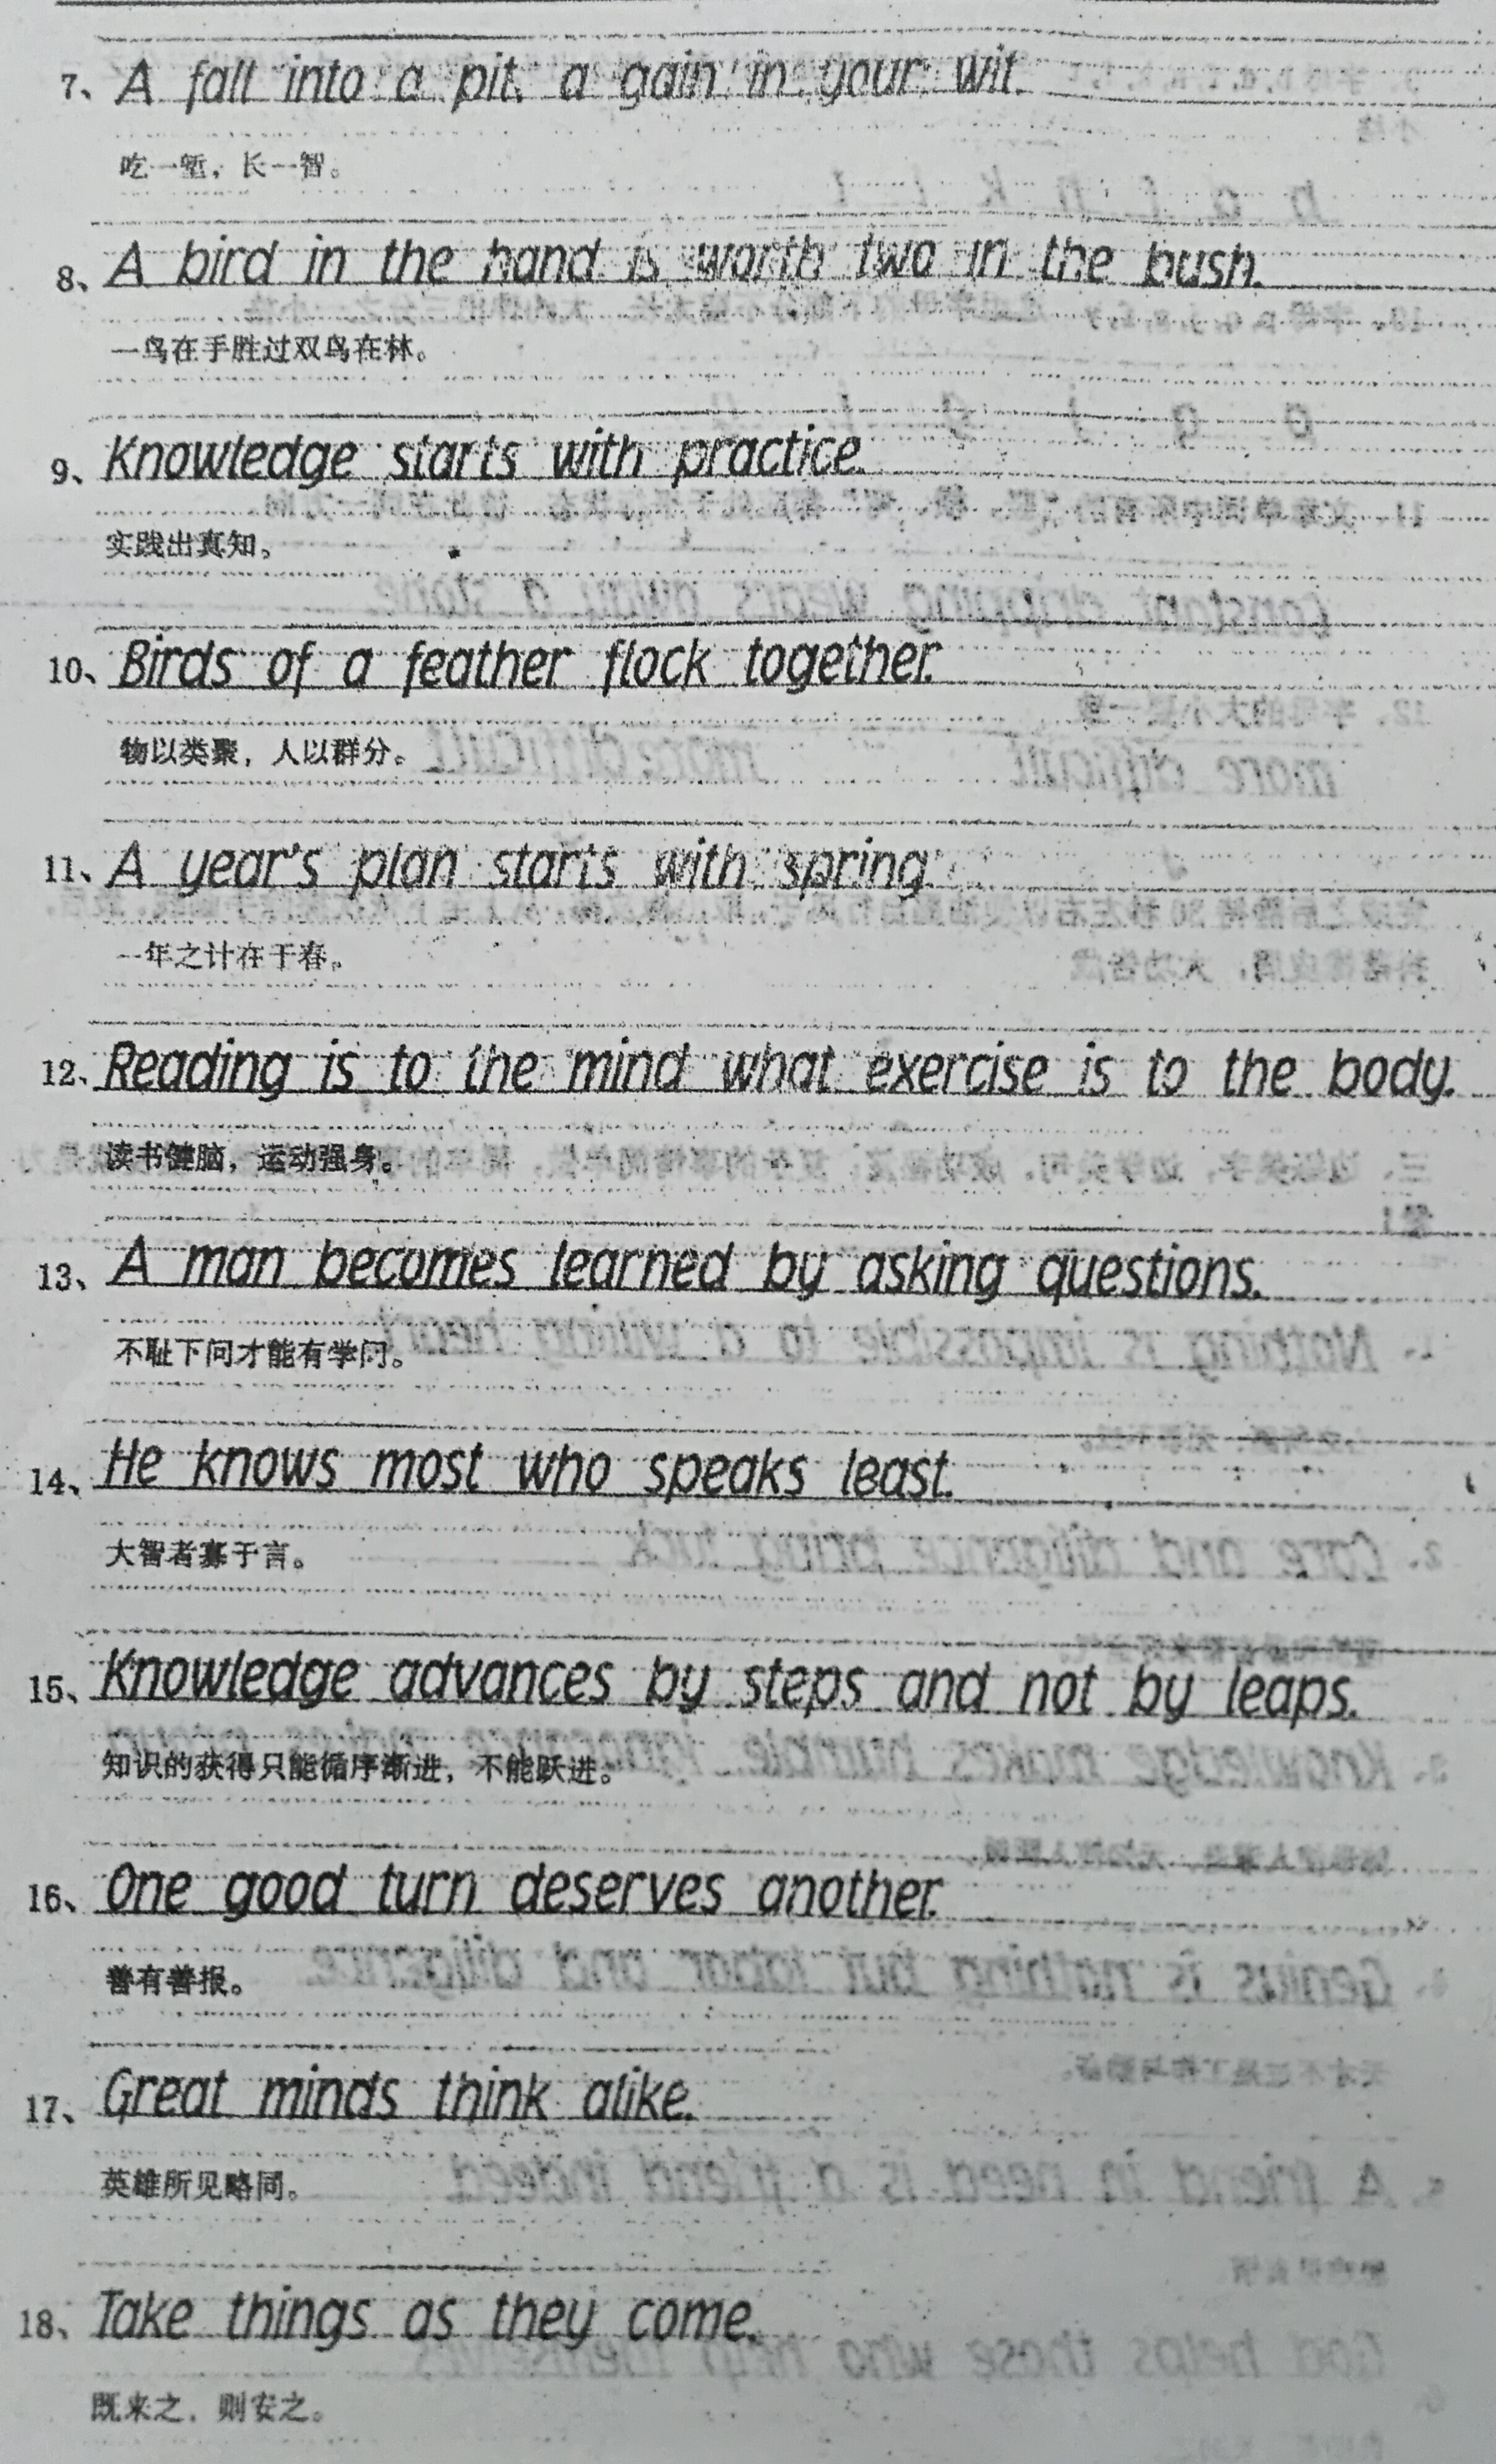 7、A fall into a pit, a gain in your wit.
吃一堑，长一智。
8、A bird in the hand is worth two in the bush.
一鸟在手胜过双鸟在林。
9、Knowledge starts with practice.
实践出真知。
10、Birds of a feather flock together.
物以类聚，人以群分。
11、A year's plan starts with spring.
一年之计在于春。
12、Reading is to the mind what exercise is to the body.
读书健脑，运动强身。
13、A man becomes learned by asking questions.
不耻下问才能有学问。
14、He knows most who speaks least.
大智者寡于言。
15、Knowledge advances by steps and not by leaps.
知识的获得只能循序渐进，不能跃进。
16、One good turn deserves another.
善有善报。
17、Great minds think alike.
英雄所见略同。
18、Take things as they come.
既来之，则安之。